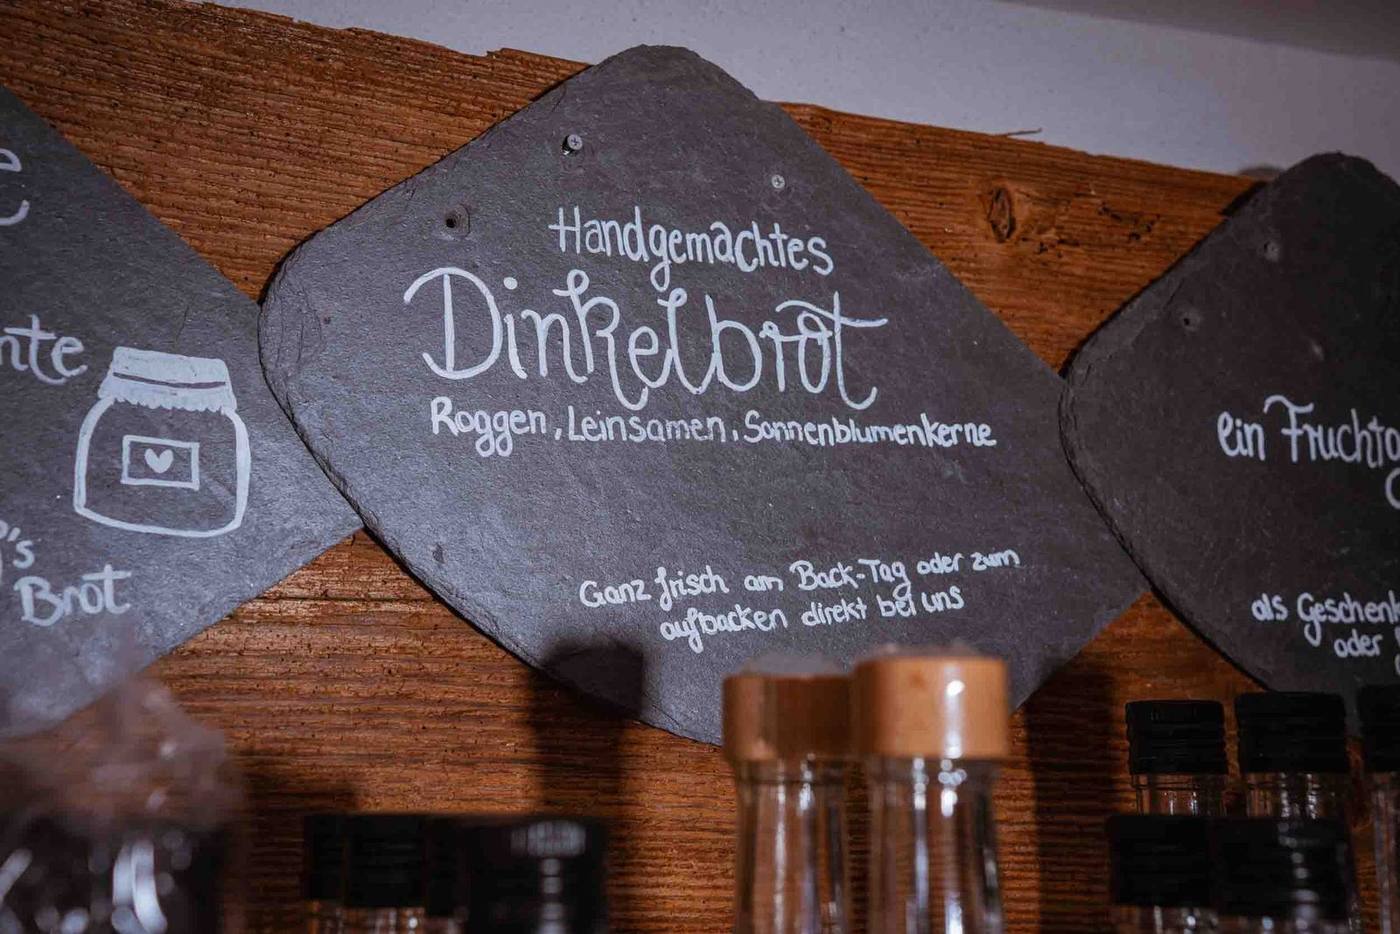 nte
's
Brot
Handgemachtes
Dinkelbrot
Roggen, Leinsamen, Sonnenblumenkerne
Ganz frisch am Back-Tag oder zum
aufbacken direkt bei uns
ein Frucht
als Geschenk
oder